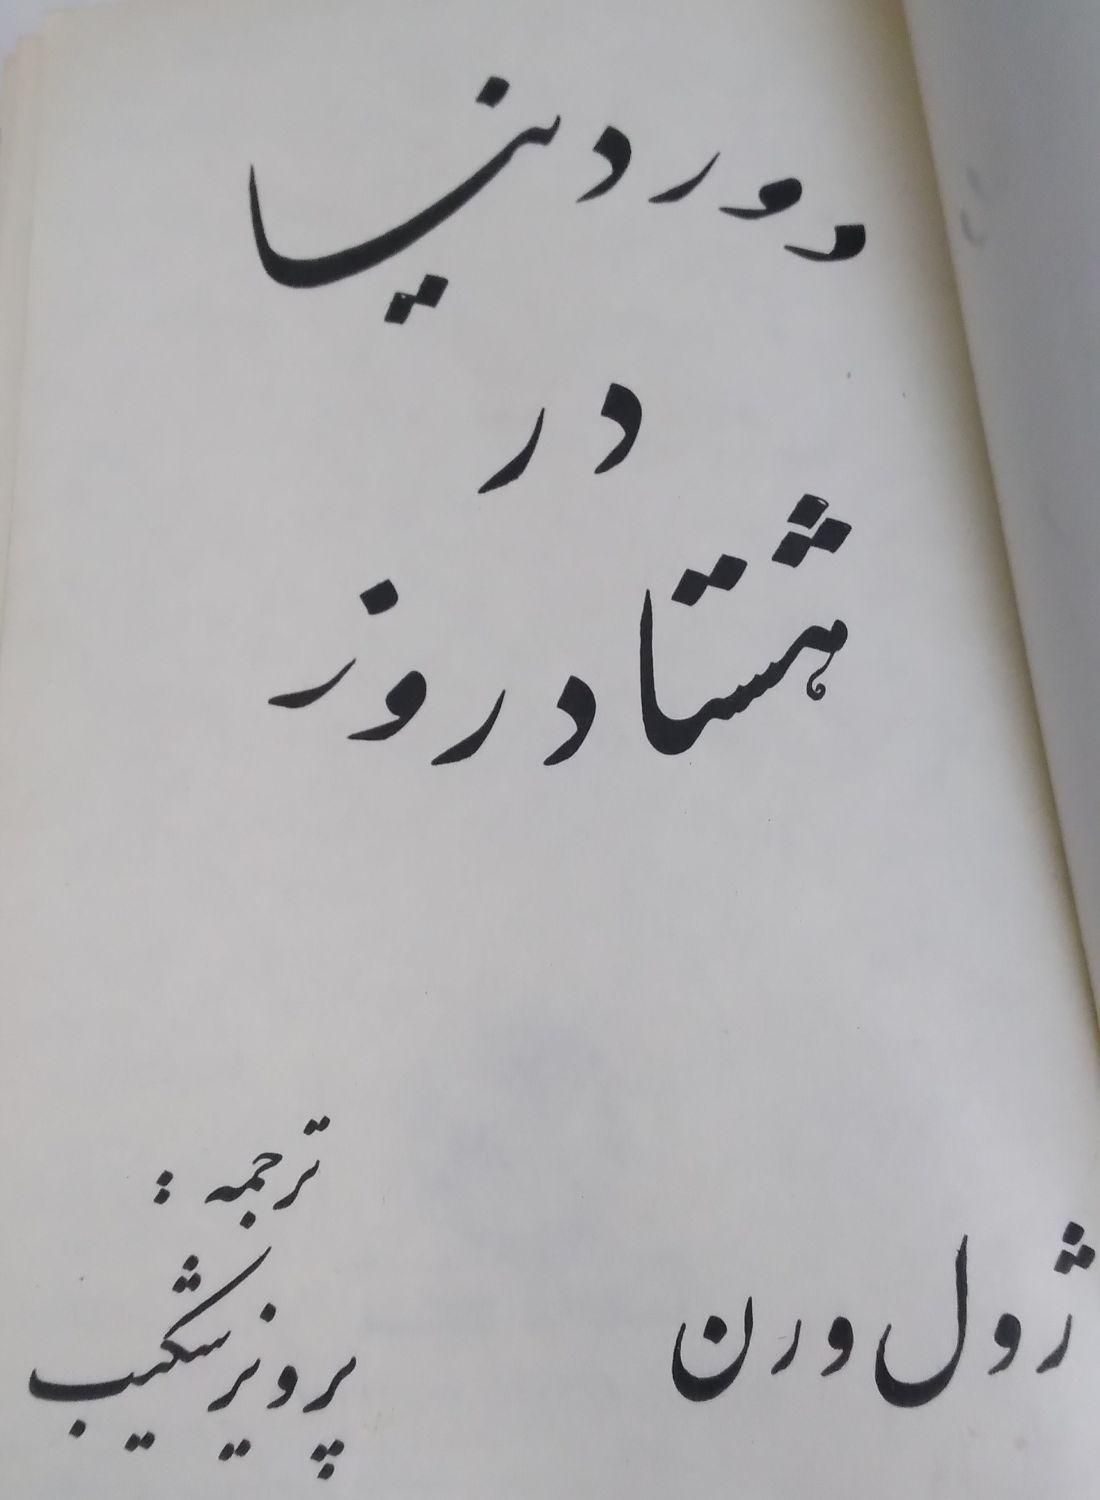 دور دنیا
در
هشتاد روز
ژول ورن
ترجمه :
پرویز شکیب